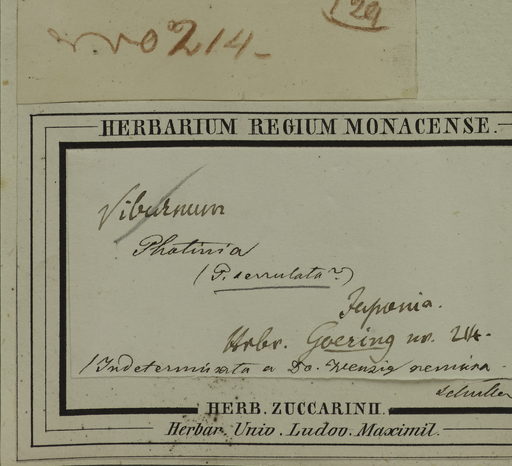 129
No 214-
HERBARIUM REGIUM MONACENSE.
Viburnum
Photinia
(P. serrulata?)
Japonia.
Hrbr. Goering nr. 214.
(Indeterminata a Do. Wenzig remissa.
HERB. ZUCCARINII.
Herbar. Univ. Ludov. Maximil.